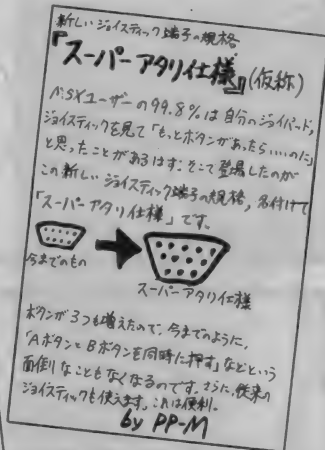 新しいジョイスティック端子の規格
『スーパーアタリ仕様』(仮称)
MSXユーザーの99.8%は自分のジョイパード,
ジョイスティックを見て「もっとボタンがあったらいいのに」
と思ったことがあるはず。そこで登場したのが
この新しいジョイスティック端子の規格,名付けて
「スーパーアタリ仕様」です。
今までのもの
スーパーアタリ仕様
ボタンが3つも増えたので、今までのように,
「AボタンとBボタンを同時に押す」などという
面倒なこともなくなるのです。さらに,従来の
ジョイスティックも使えます。これは便利。
by PP-M